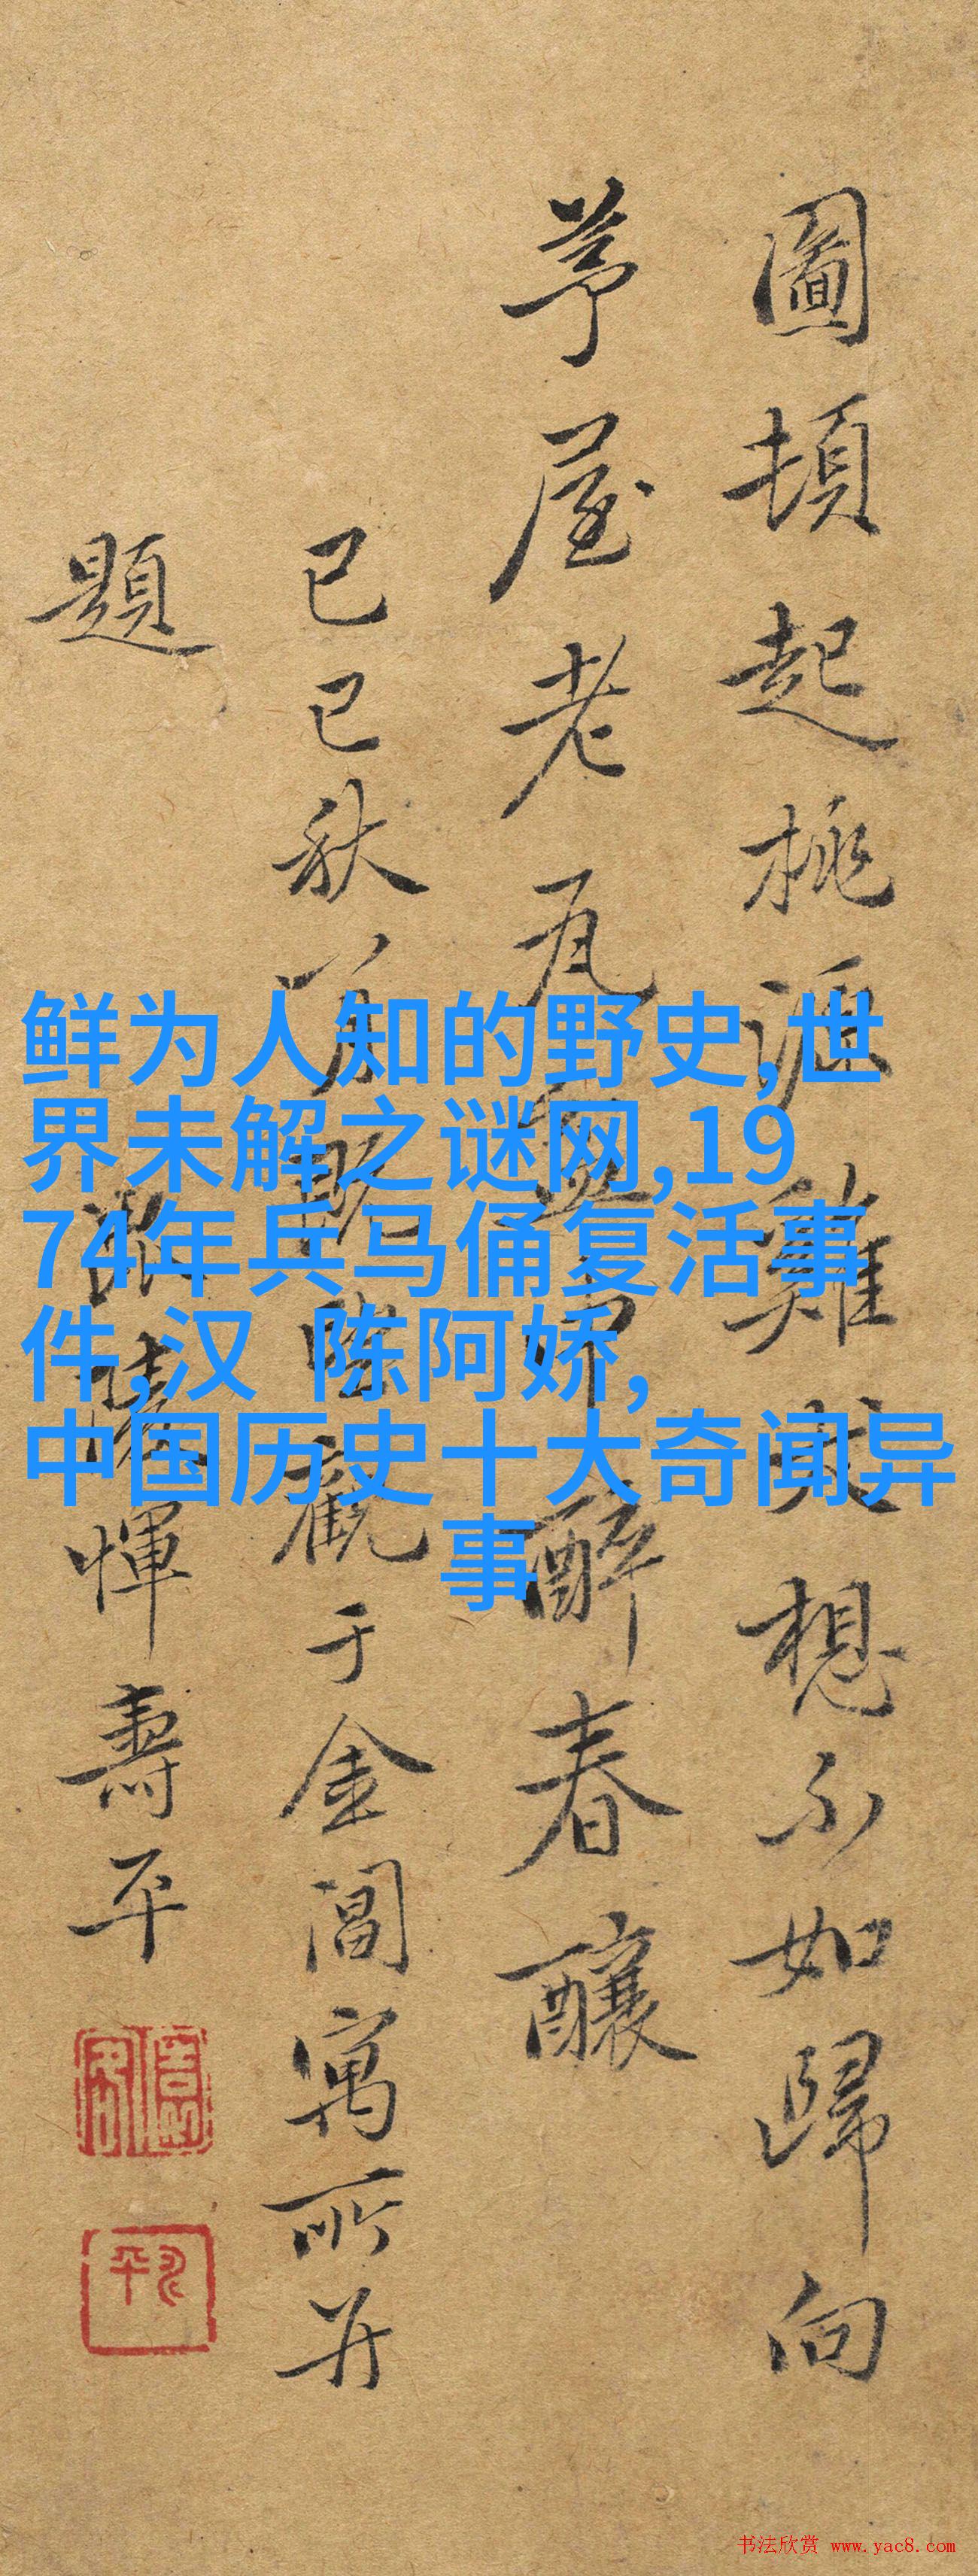 圖頓起桃源雞犬想不如歸向
茅屋老瓦盆中醉春釀
己巳秋八月既望觀于金閶寓所并
題
惲壽平
鲜为人知的野史,世
界未解之谜网,19
74年兵马俑复活事
件,汉 陈阿娇,
中国历史十大奇闻异
事
书法欣赏 www.yac8.com